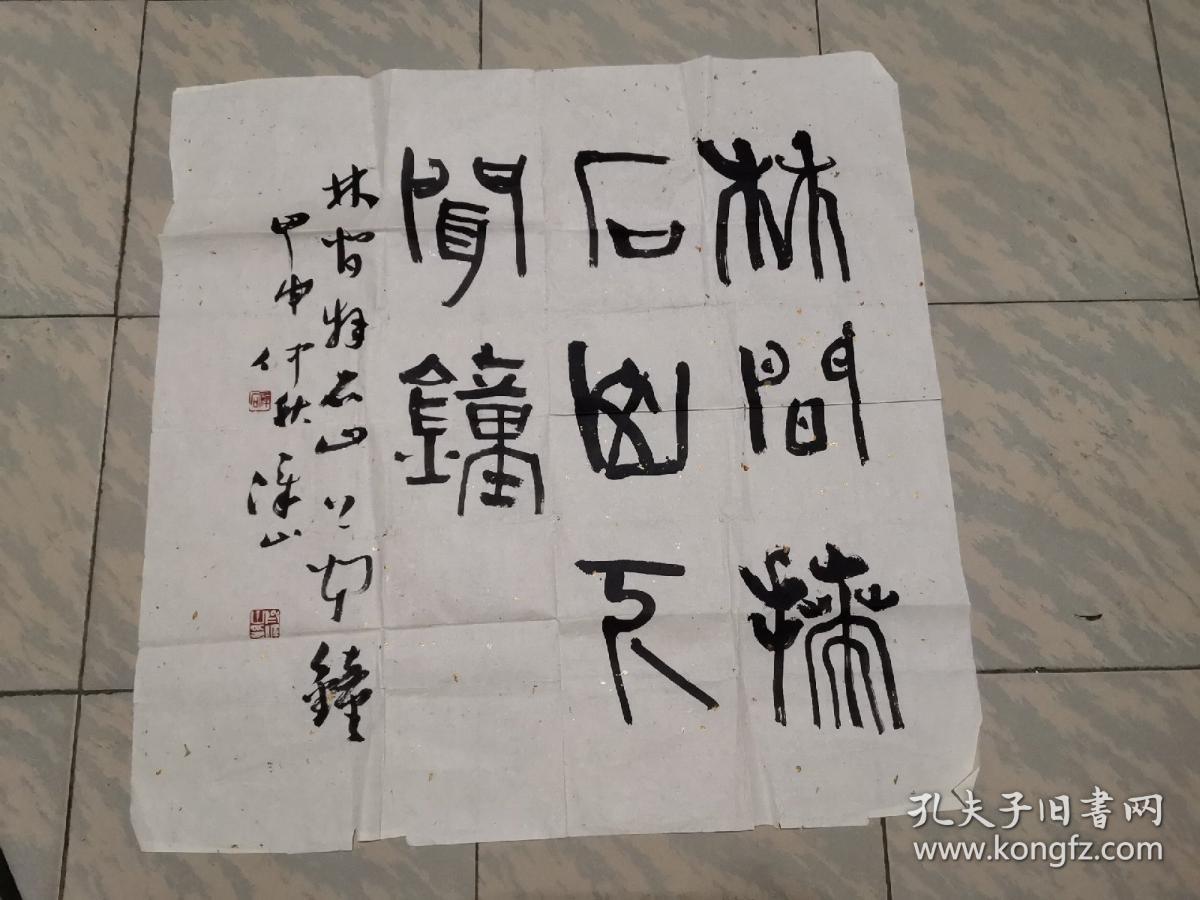 林間
石山下
聞鐘
林間石山下聞鐘
甲申仲秋山
孔夫子旧書网
www.kongfz.com